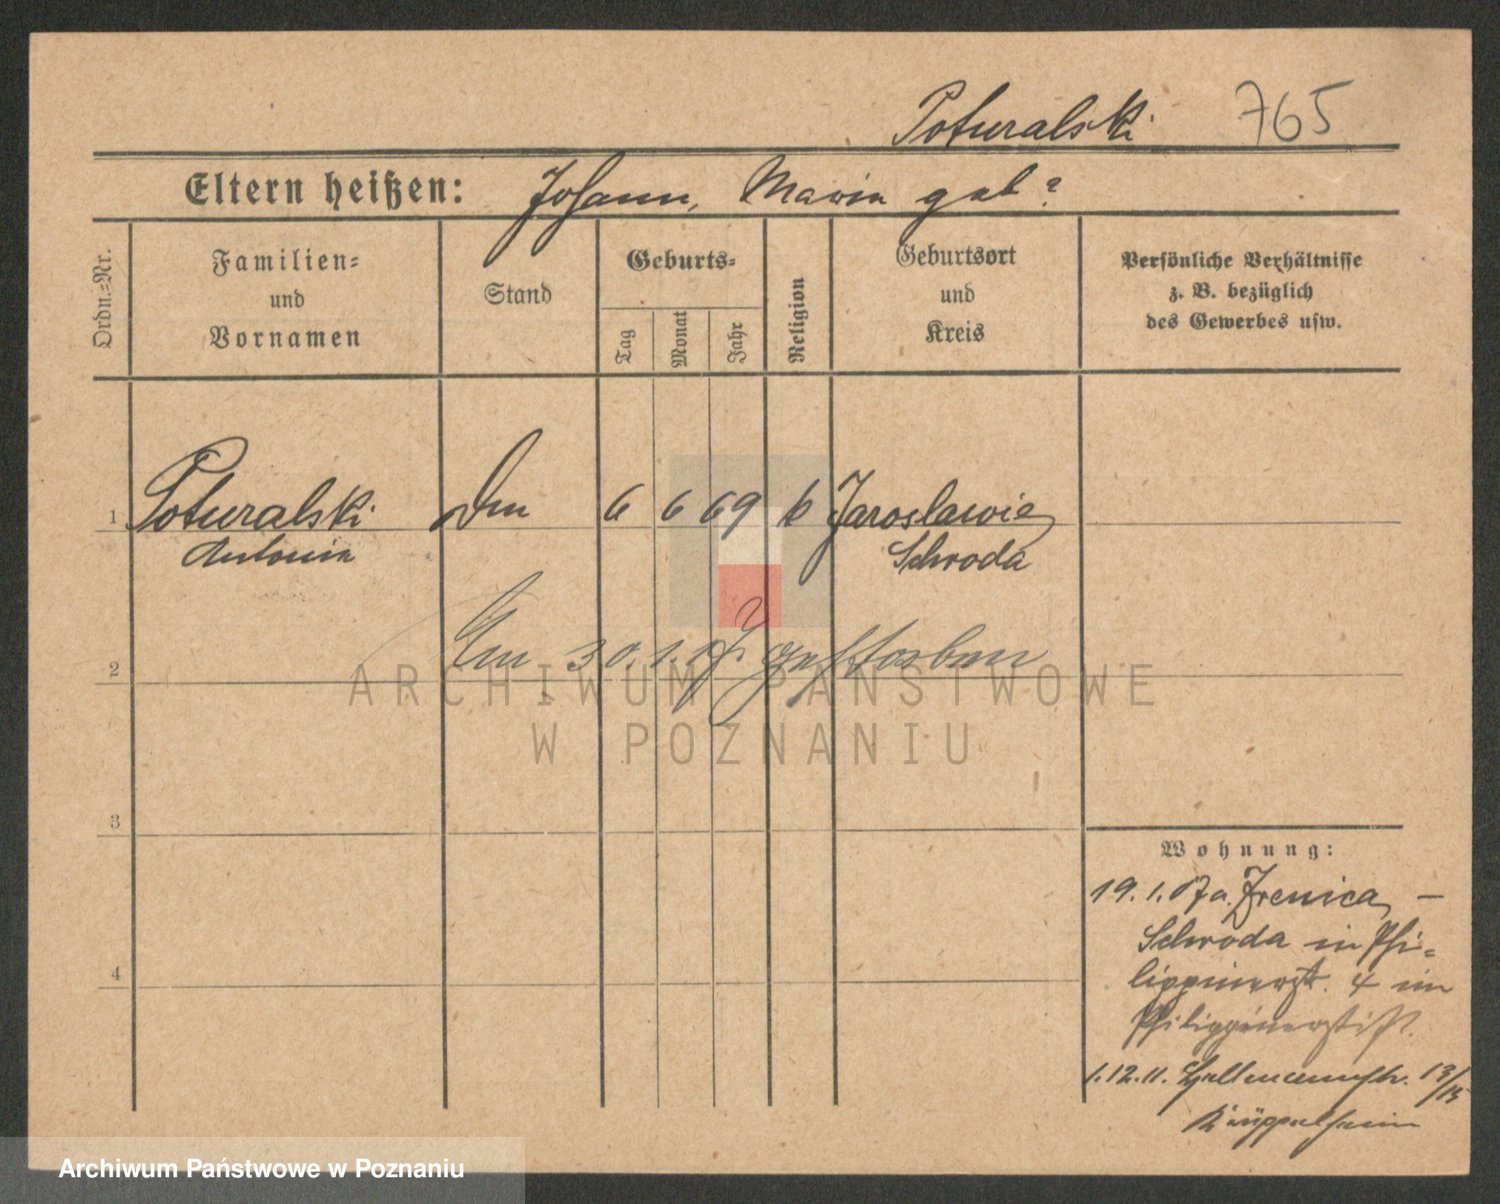 Poturalski 765
Eltern heißen: Johann, Maria geb?
Ordn.-Nr.
Familien-
und
Vornamen
Stand
Geburts-
Tag
Monat
Jahr
Religion
Geburtsort
und
Kreis
Persönliche Verhältnisse
z. B. bezüglich
des Gewerbes usw.
1 Poturalski 6 6 69 k Jaroslawie
Antonia Schroda
2 Am 30.1.17. gestorben
3
4
Wohnung:
19.1.07 a. Zrenica –
Schroda in Phi-
lippinerstr. 4 im
Philippinerstift.
1.12.11. 13/15
Krüppelheim
ARCHIWUM PAŃSTWOWE
W POZNANIU
Archiwum Państwowe w Poznaniu